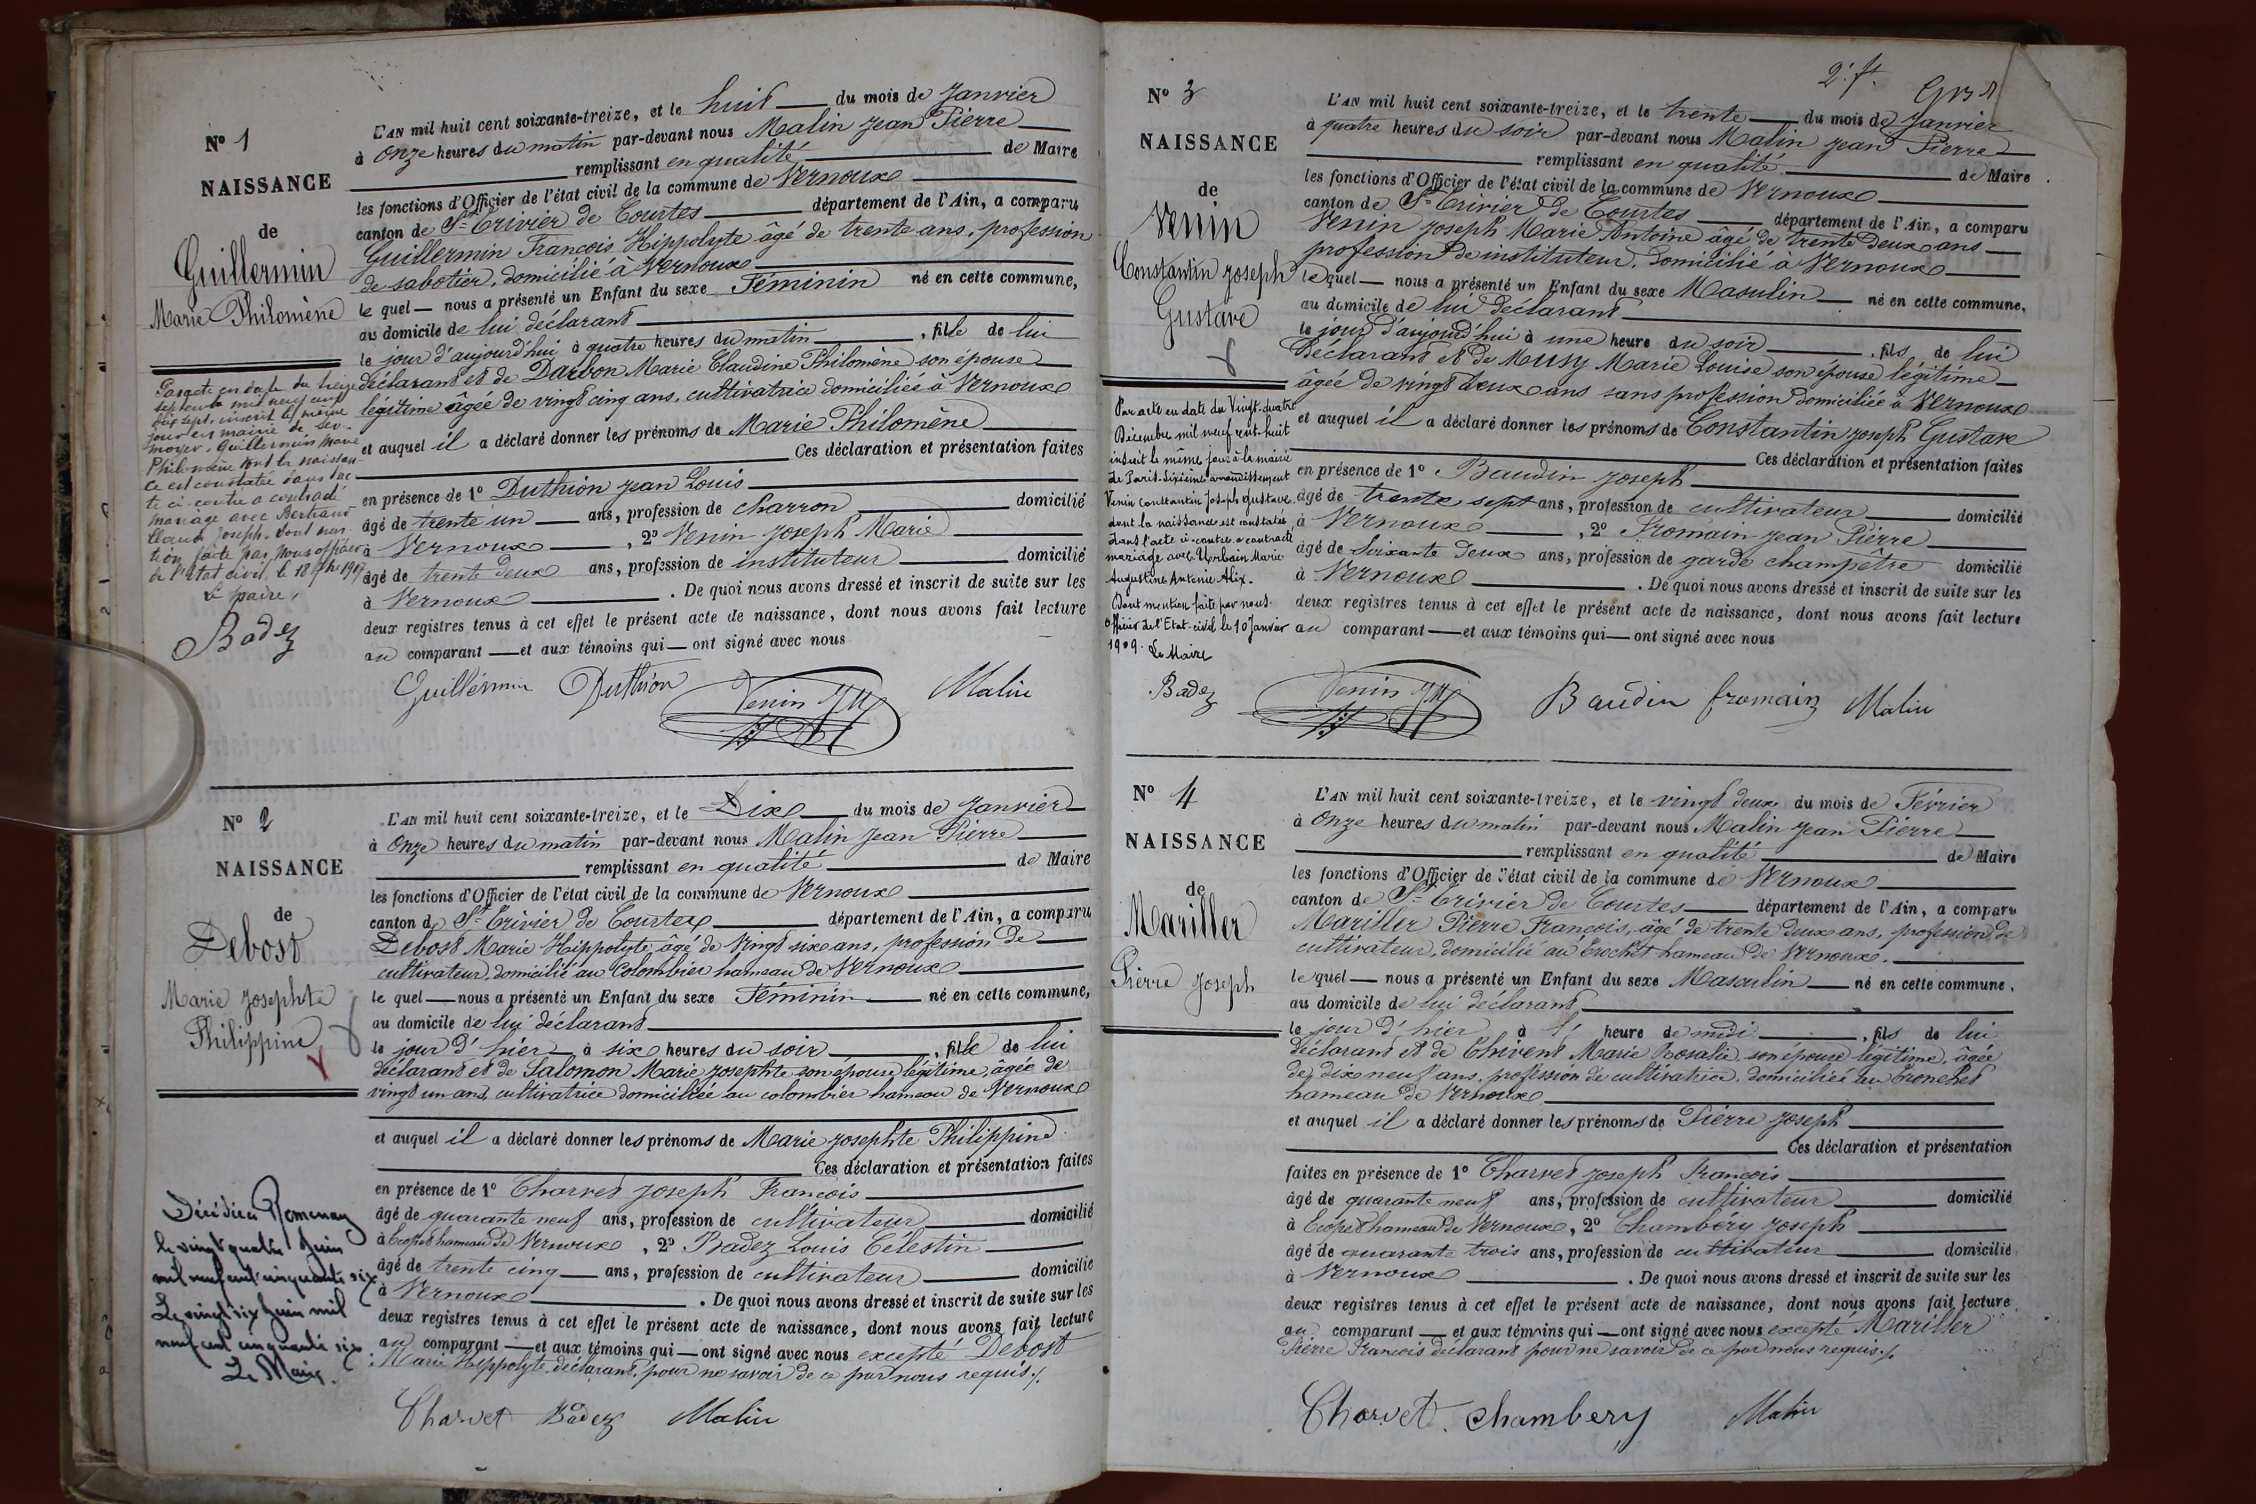 N° 1
NAISSANCE
de
Guillermin
Marie Philomène
L'AN mil huit cent soixante-treize, et le huit du mois de Janvier
à Onze heures du matin par-devant nous Malin Jean Pierre
remplissant en qualité de Maire
les fonctions d'Officier de l'état civil de la commune de Vernoux
canton de St Trivier de Courtes département de l'Ain, a comparu
Guillermin François Hippolyte âgé de trente ans, profession
de sabotier, domicilié à Vernoux
le quel nous a présenté un Enfant du sexe Féminin né en cette commune,
au domicile de lui déclarant
le jour d'aujourd'hui à quatre heures du matin, fille de lui
déclarant et de Darbon Marie Claudine Philomène son épouse
légitime âgée de vingt cinq ans, cultivatrice domiciliée à Vernoux
et auquel il a déclaré donner les prénoms de Marie Philomène
Ces déclaration et présentation faites
en présence de 1° Duthion Jean Louis
âgé de trente un ans, profession de charron domicilié
à Vernoux, 2° Venin Joseph Marie
âgé de trente deux ans, profession de instituteur domicilié
à Vernoux. De quoi nous avons dressé et inscrit de suite sur les
deux registres tenus à cet effet le présent acte de naissance, dont nous avons fait lecture
au comparant et aux témoins qui ont signé avec nous
Par acte en date du treize
septembre mil neuf cent
dix sept, inscrit le même
jour en mairie de Ser-
moyer, Guillermin Marie
Philomène dont la naissan-
ce est constatée dans l'ac-
te ci-contre a contracté
mariage avec Bertrand
Claude Joseph. Dont men-
tion faite par nous officier
de l'état civil, le 18 7bre 1917
Le maire,
Badez
Guillermin Duthion Venin JM Malin
N° 2
NAISSANCE
de
Debost
Marie Josephte
Philippine
L'AN mil huit cent soixante-treize, et le Dix du mois de Janvier
à Onze heures du matin par-devant nous Malin Jean Pierre
remplissant en qualité de Maire
les fonctions d'Officier de l'état civil de la commune de Vernoux
canton de St Trivier de Courtes département de l'Ain, a comparu
Debost Marie Hippolyte, âgé de vingt six ans, profession de
cultivateur, domicilié au Colombier hameau de Vernoux
le quel nous a présenté un Enfant du sexe Féminin né en cette commune,
au domicile de lui déclarant
le jour d'hier à six heures du soir, fille de lui
déclarant et de Salomon Marie Josephte son épouse légitime, âgée de
vingt un ans, cultivatrice domiciliée au colombier hameau de Vernoux
et auquel il a déclaré donner les prénoms de Marie Josephte Philippine
Ces déclaration et présentation faites
en présence de 1° Charvet Joseph François
âgé de quarante neuf ans, profession de cultivateur domicilié
à Ecopet hameau de Vernoux, 2° Badez Louis Célestin
âgé de trente cinq ans, profession de cultivateur domicilié
à Vernoux. De quoi nous avons dressé et inscrit de suite sur les
deux registres tenus à cet effet le présent acte de naissance, dont nous avons fait lecture
au comparant et aux témoins qui ont signé avec nous excepté Debost
Marie Hippolyte déclarant, pour ne savoir de ce par nous requis ./.
Décédée à Romenay
le vingt quatre Juin
mil neuf cent cinquante six
Le vingt six Juin mil
neuf cent cinquante six
Le Maire.
Charvet Badez Malin
2e ft.
N° 3
NAISSANCE
de
Venin
Constantin Joseph
Gustave
L'AN mil huit cent soixante-treize, et le trente du mois de Janvier
à quatre heures du soir par-devant nous Malin Jean Pierre
remplissant en qualité de Maire
les fonctions d'Officier de l'état civil de la commune de Vernoux
canton de St Trivier de Courtes département de l'Ain, a comparu
Venin Joseph Marie Antoine âgé de trente deux ans
profession de instituteur, domicilié à Vernoux
le quel nous a présenté un Enfant du sexe Masculin né en cette commune,
au domicile de lui déclarant
le jour d'aujourd'hui à une heure du soir, fils de lui
Déclarant et de Musy Marie Louise son épouse légitime
âgée de vingt deux ans sans profession domiciliée à Vernoux
et auquel il a déclaré donner les prénoms de Constantin Joseph Gustave
Ces déclaration et présentation faites
en présence de 1° Baudin Joseph
âgé de trente sept ans, profession de cultivateur domicilié
à Vernoux, 2° Fromain Jean Pierre
âgé de Soixante deux ans, profession de garde champêtre domicilié
à Vernoux. De quoi nous avons dressé et inscrit de suite sur les
deux registres tenus à cet effet le présent acte de naissance, dont nous avons fait lecture
au comparant et aux témoins qui ont signé avec nous
Par acte en date du Vingt-quatre
Décembre mil neuf cent huit
inscrit le même jour à la mairie
de Paris-Sixième arrondissement
Venin Constantin Joseph Gustave
dont la naissance est constatée
dans l'acte ci-contre a contracté
mariage avec Urbain Marie
Augustine Antonie Alix.
Dont mention faite par nous
officier de l'Etat-civil le 10 Janvier
1909. Le Maire
Badez
Venin JM Baudin fromain Malin
N° 4
NAISSANCE
de
Mariller
Pierre Joseph
L'AN mil huit cent soixante-treize, et le vingt deux du mois de Février
à Onze heures du matin par-devant nous Malin Jean Pierre
remplissant en qualité de Maire
les fonctions d'Officier de l'état civil de la commune de Vernoux
canton de St Trivier de Courtes département de l'Ain, a comparu
Mariller Pierre François, âgé de trente deux ans, profession de
cultivateur, domicilié au hameau de Vernoux.
le quel nous a présenté un Enfant du sexe Masculin né en cette commune,
au domicile de lui déclarant
le jour d'hier à heure de midi, fils de lui
déclarant et de Chivent Marie Rosalie son épouse légitime, âgée
de dix neuf ans, profession de cultivatrice, domiciliée au
hameau de Vernoux
et auquel il a déclaré donner les prénoms de Pierre Joseph
Ces déclaration et présentation
faites en présence de 1° Charvet Joseph François
âgé de quarante neuf ans, profession de cultivateur domicilié
à Ecopet hameau de Vernoux, 2° Chambéry Joseph
âgé de quarante trois ans, profession de cultivateur domicilié
à Vernoux. De quoi nous avons dressé et inscrit de suite sur les
deux registres tenus à cet effet le présent acte de naissance, dont nous avons fait lecture
au comparant et aux témoins qui ont signé avec nous excepté Mariller
Pierre François déclarant pour ne savoir de ce par nous requis ./.
Charvet. Chambery Malin